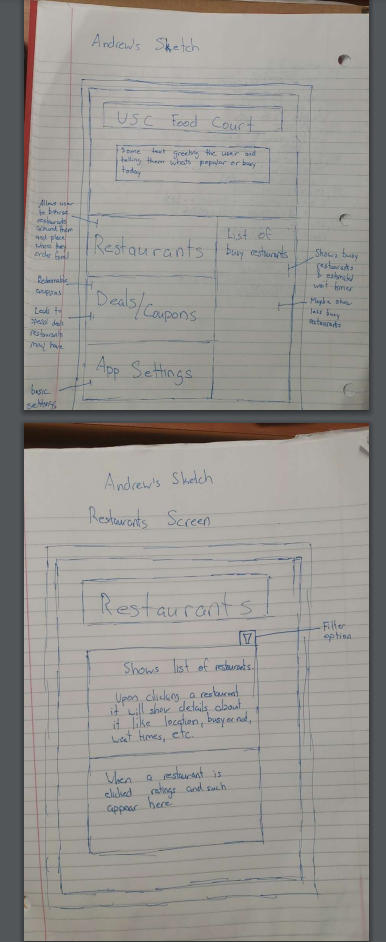 Andrew's Sketch
USC Food Court
Some text greeting the user and
telling them whats popular or busy
today
Allows user
to browse
restaurants
around them
and place
where they
order food
Restaurants
List of
busy restaurants
Shows busy
restaurants
& estimated
wait times
Redeemable
coupons
Deals/Coupons
Leads to
special deals
restaurants
may have
Maybe show
less busy
restaurants
App Settings
basic
settings
Andrew's Sketch
Restaurants Screen
Restaurants
Filter
option
Shows list of restaurants.
Upon clicking a restaurant
it will show details about
it like location, busy or not,
wait times, etc.
When a restaurant is
clicked ratings and such
appear here